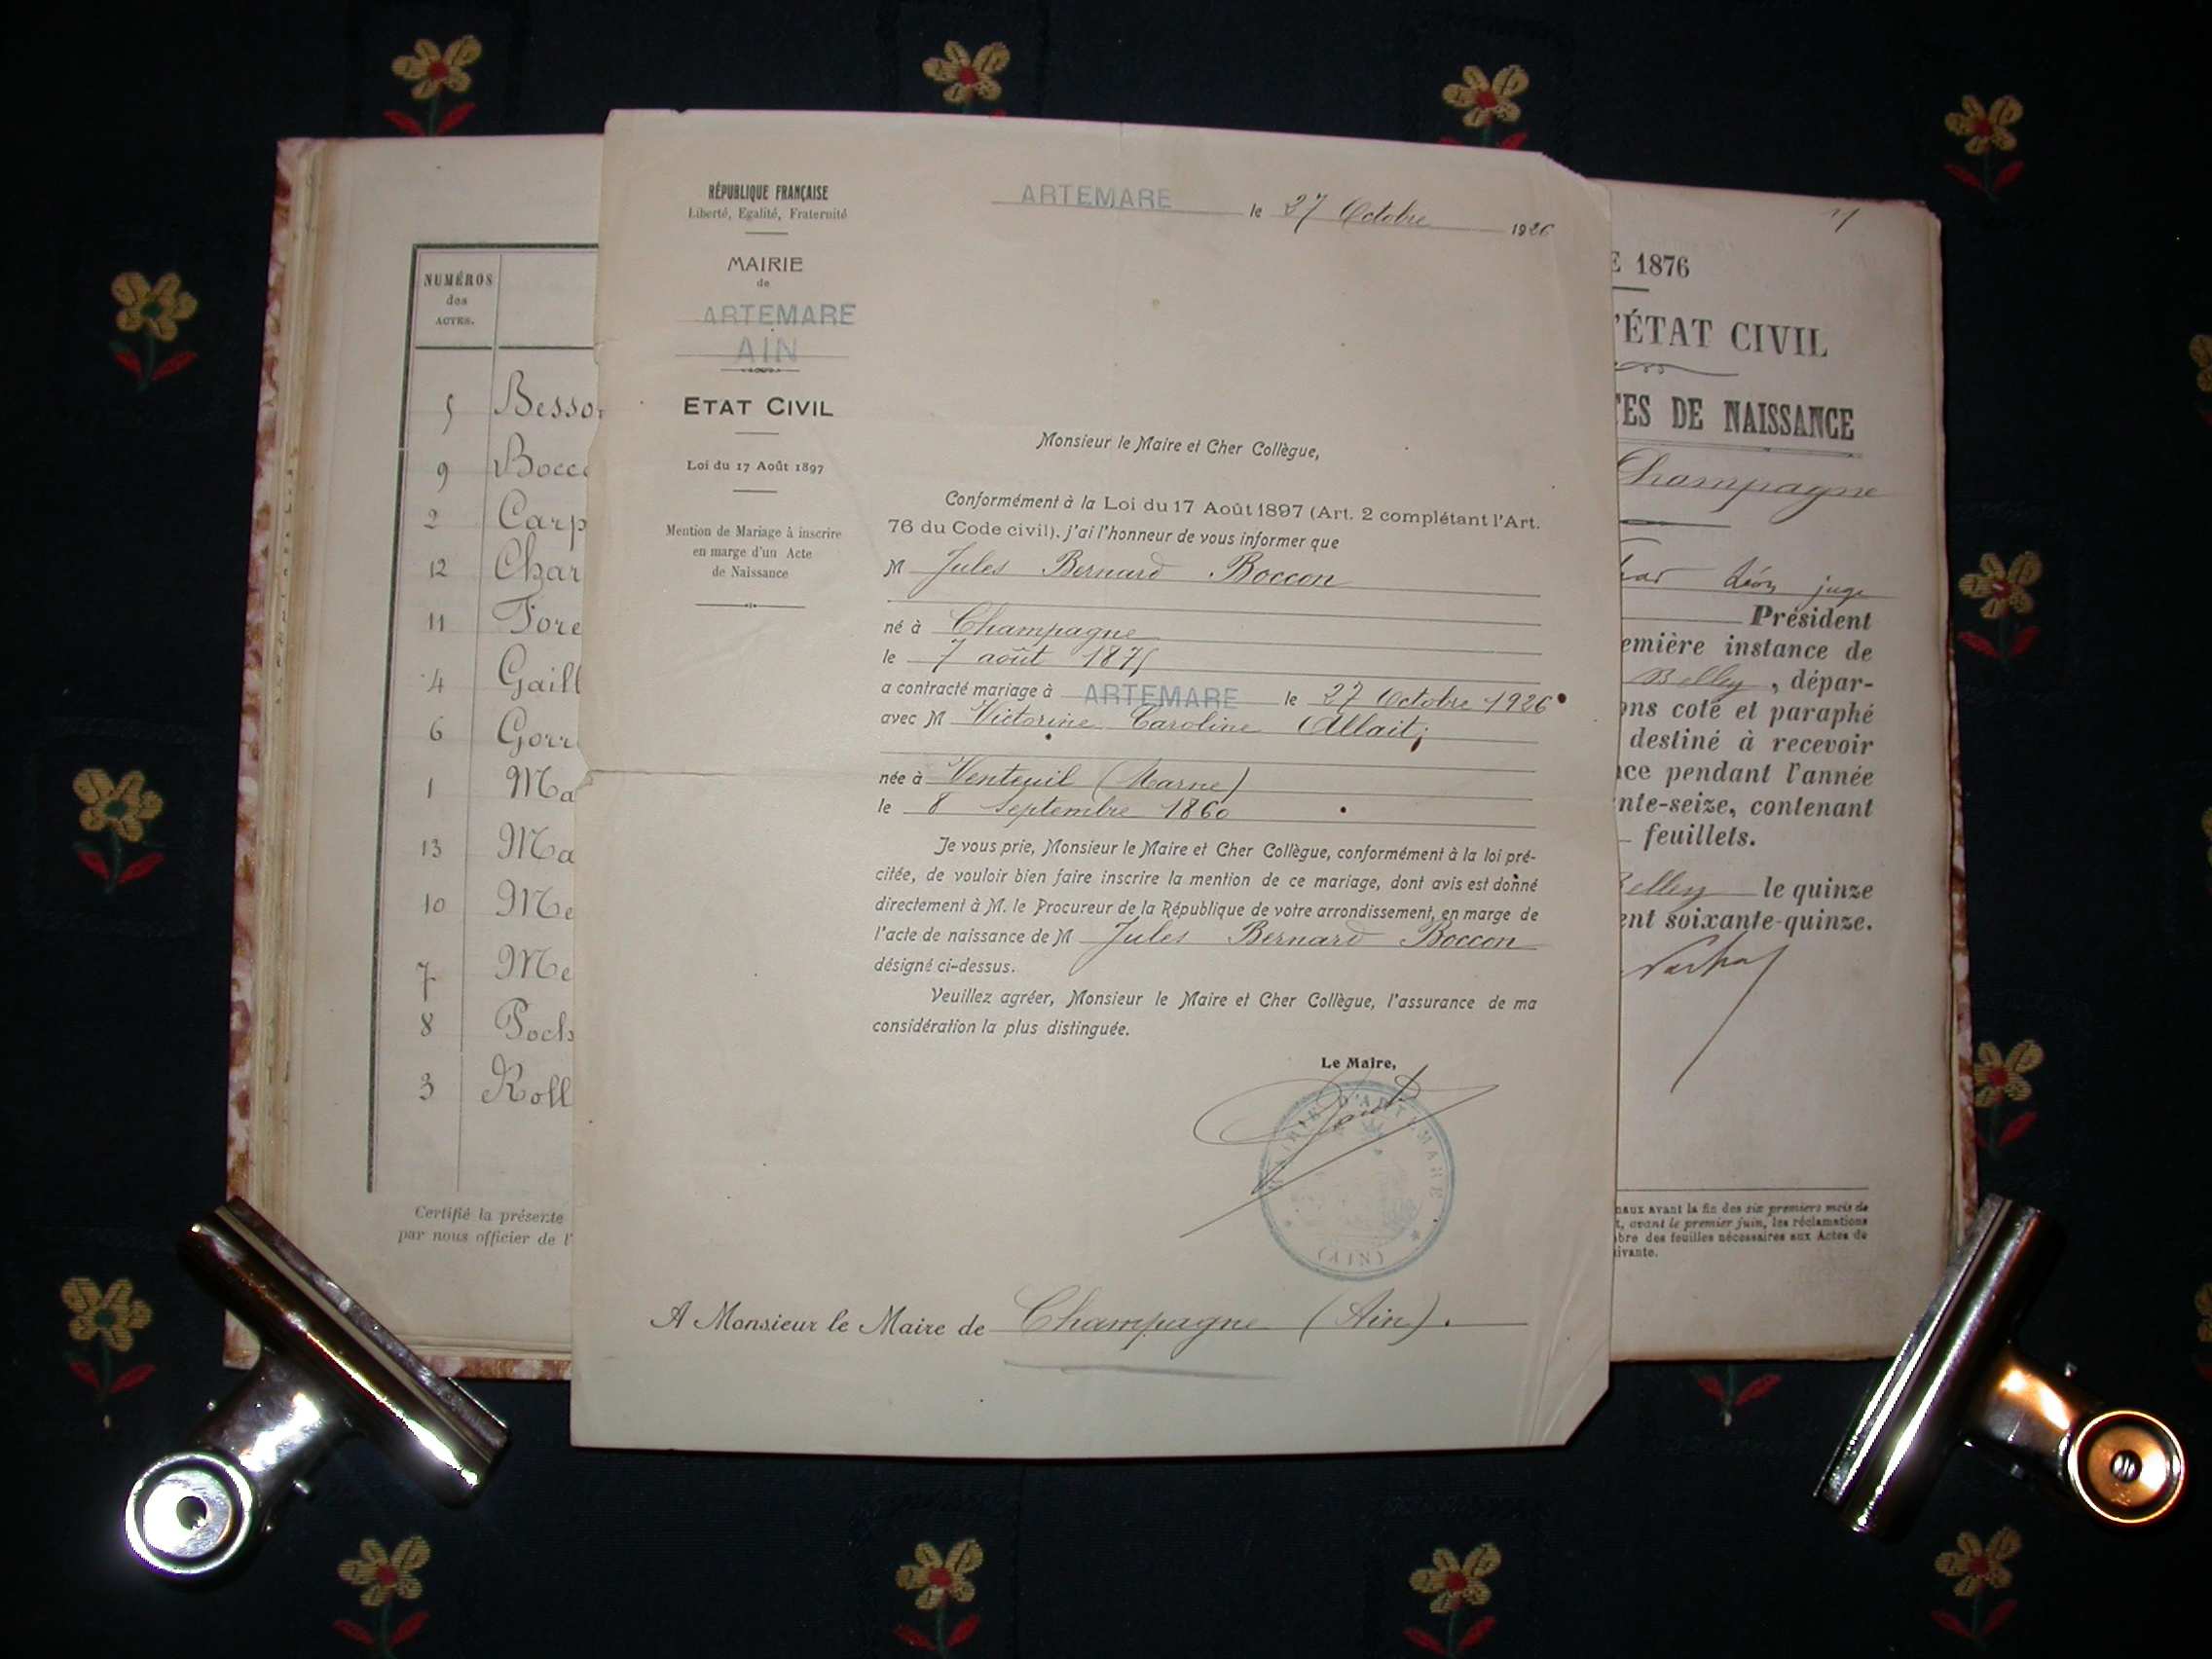 NUMÉROS
des
ACTES.
5 Besson
9 Bocc
2 Carp
12 Char
11 Fore
4 Gaill
6 Gorr
1 Ma
13 Ma
10 Me
7 Me
8 Poch
3 Roll
Certifié la présente
par nous officier de l'
RÉPUBLIQUE FRANÇAISE
Liberté, Egalité, Fraternité
MAIRIE
de
ARTEMARE
AIN
ETAT CIVIL
Loi du 17 Août 1897
Mention de Mariage à inscrire
en marge d'un Acte
de Naissance
ARTEMARE le 27 Octobre 1926
Monsieur le Maire et Cher Collègue,
Conformément à la Loi du 17 Août 1897 (Art. 2 complétant l'Art.
76 du Code civil), j'ai l'honneur de vous informer que
M Jules Bernard Boccon
né à Champagne
le 7 août 1875
a contracté mariage à ARTEMARE le 27 Octobre 1926
avec M Victorine Caroline Allait;
née à Venteuil (Marne)
le 8 Septembre 1860
Je vous prie, Monsieur le Maire et Cher Collègue, conformément à la loi pré-
citée, de vouloir bien faire inscrire la mention de ce mariage, dont avis est donné
directement à M. le Procureur de la République de votre arrondissement, en marge de
l'acte de naissance de M Jules Bernard Boccon
désigné ci-dessus.
Veuillez agréer, Monsieur le Maire et Cher Collègue, l'assurance de ma
considération la plus distinguée.
Le Maire,
MAIRIE D'ARTEMARE
(AIN)
A Monsieur le Maire de Champagne (Ain).
E 1876
'ÉTAT CIVIL
TES DE NAISSANCE
Champagne
Léon juge
Président
emière instance de
Belley, dépar-
ons coté et paraphé
destiné à recevoir
nce pendant l'année
nte-seize, contenant
feuillets.
Belley le quinze
ent soixante-quinze.
naux avant la fin des six premiers mois de
t, avant le premier juin, les réclamations
bre des feuilles nécessaires aux Actes de
ivante.